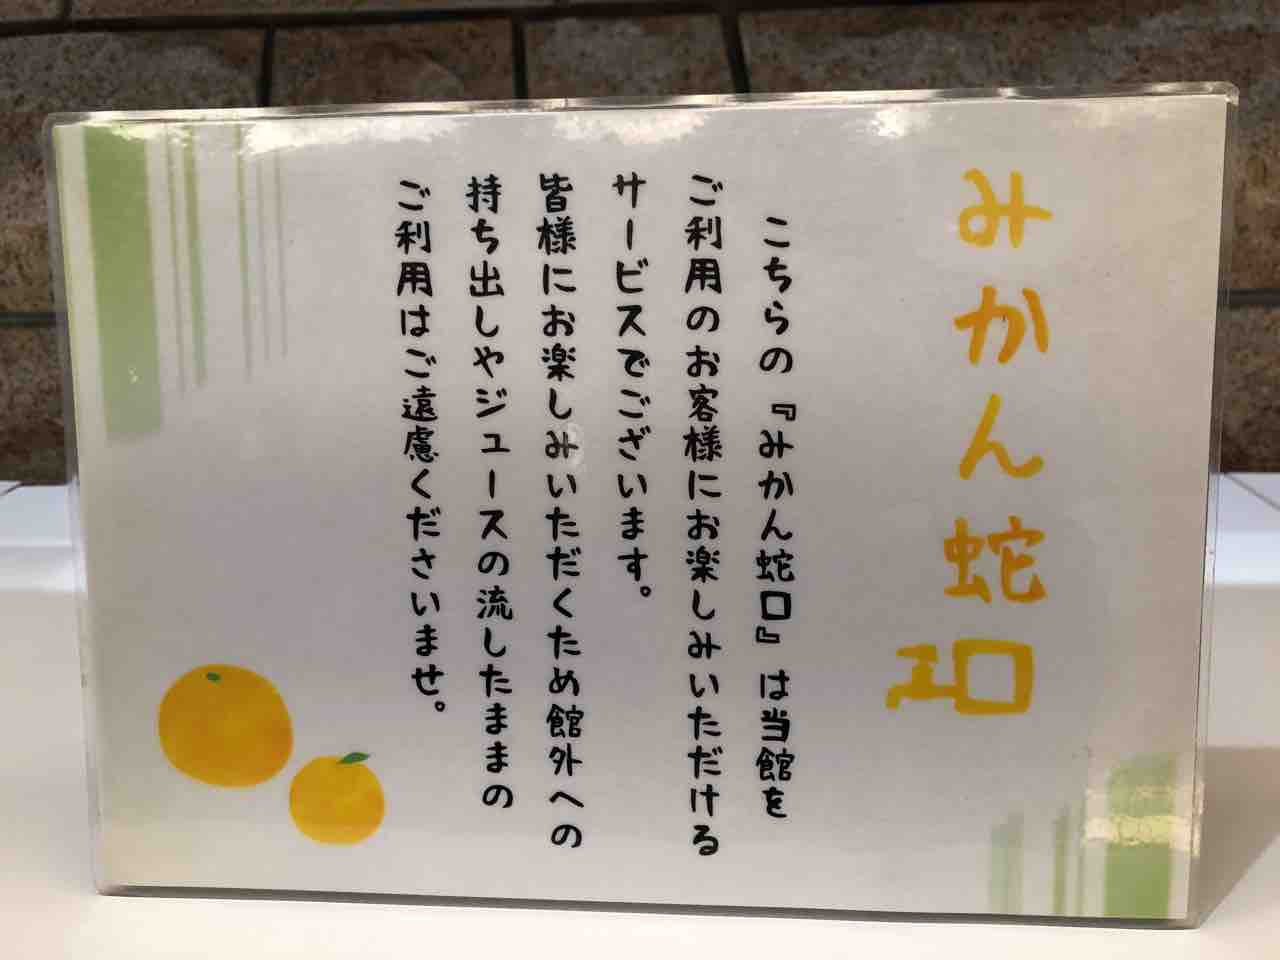 みかん蛇口
こちらの『みかん蛇口』は当館を
ご利用のお客様にお楽しみいただける
サービスでございます。
皆様にお楽しみいただくため館外への
持ち出しやジュースの流したままの
ご利用はご遠慮くださいませ。